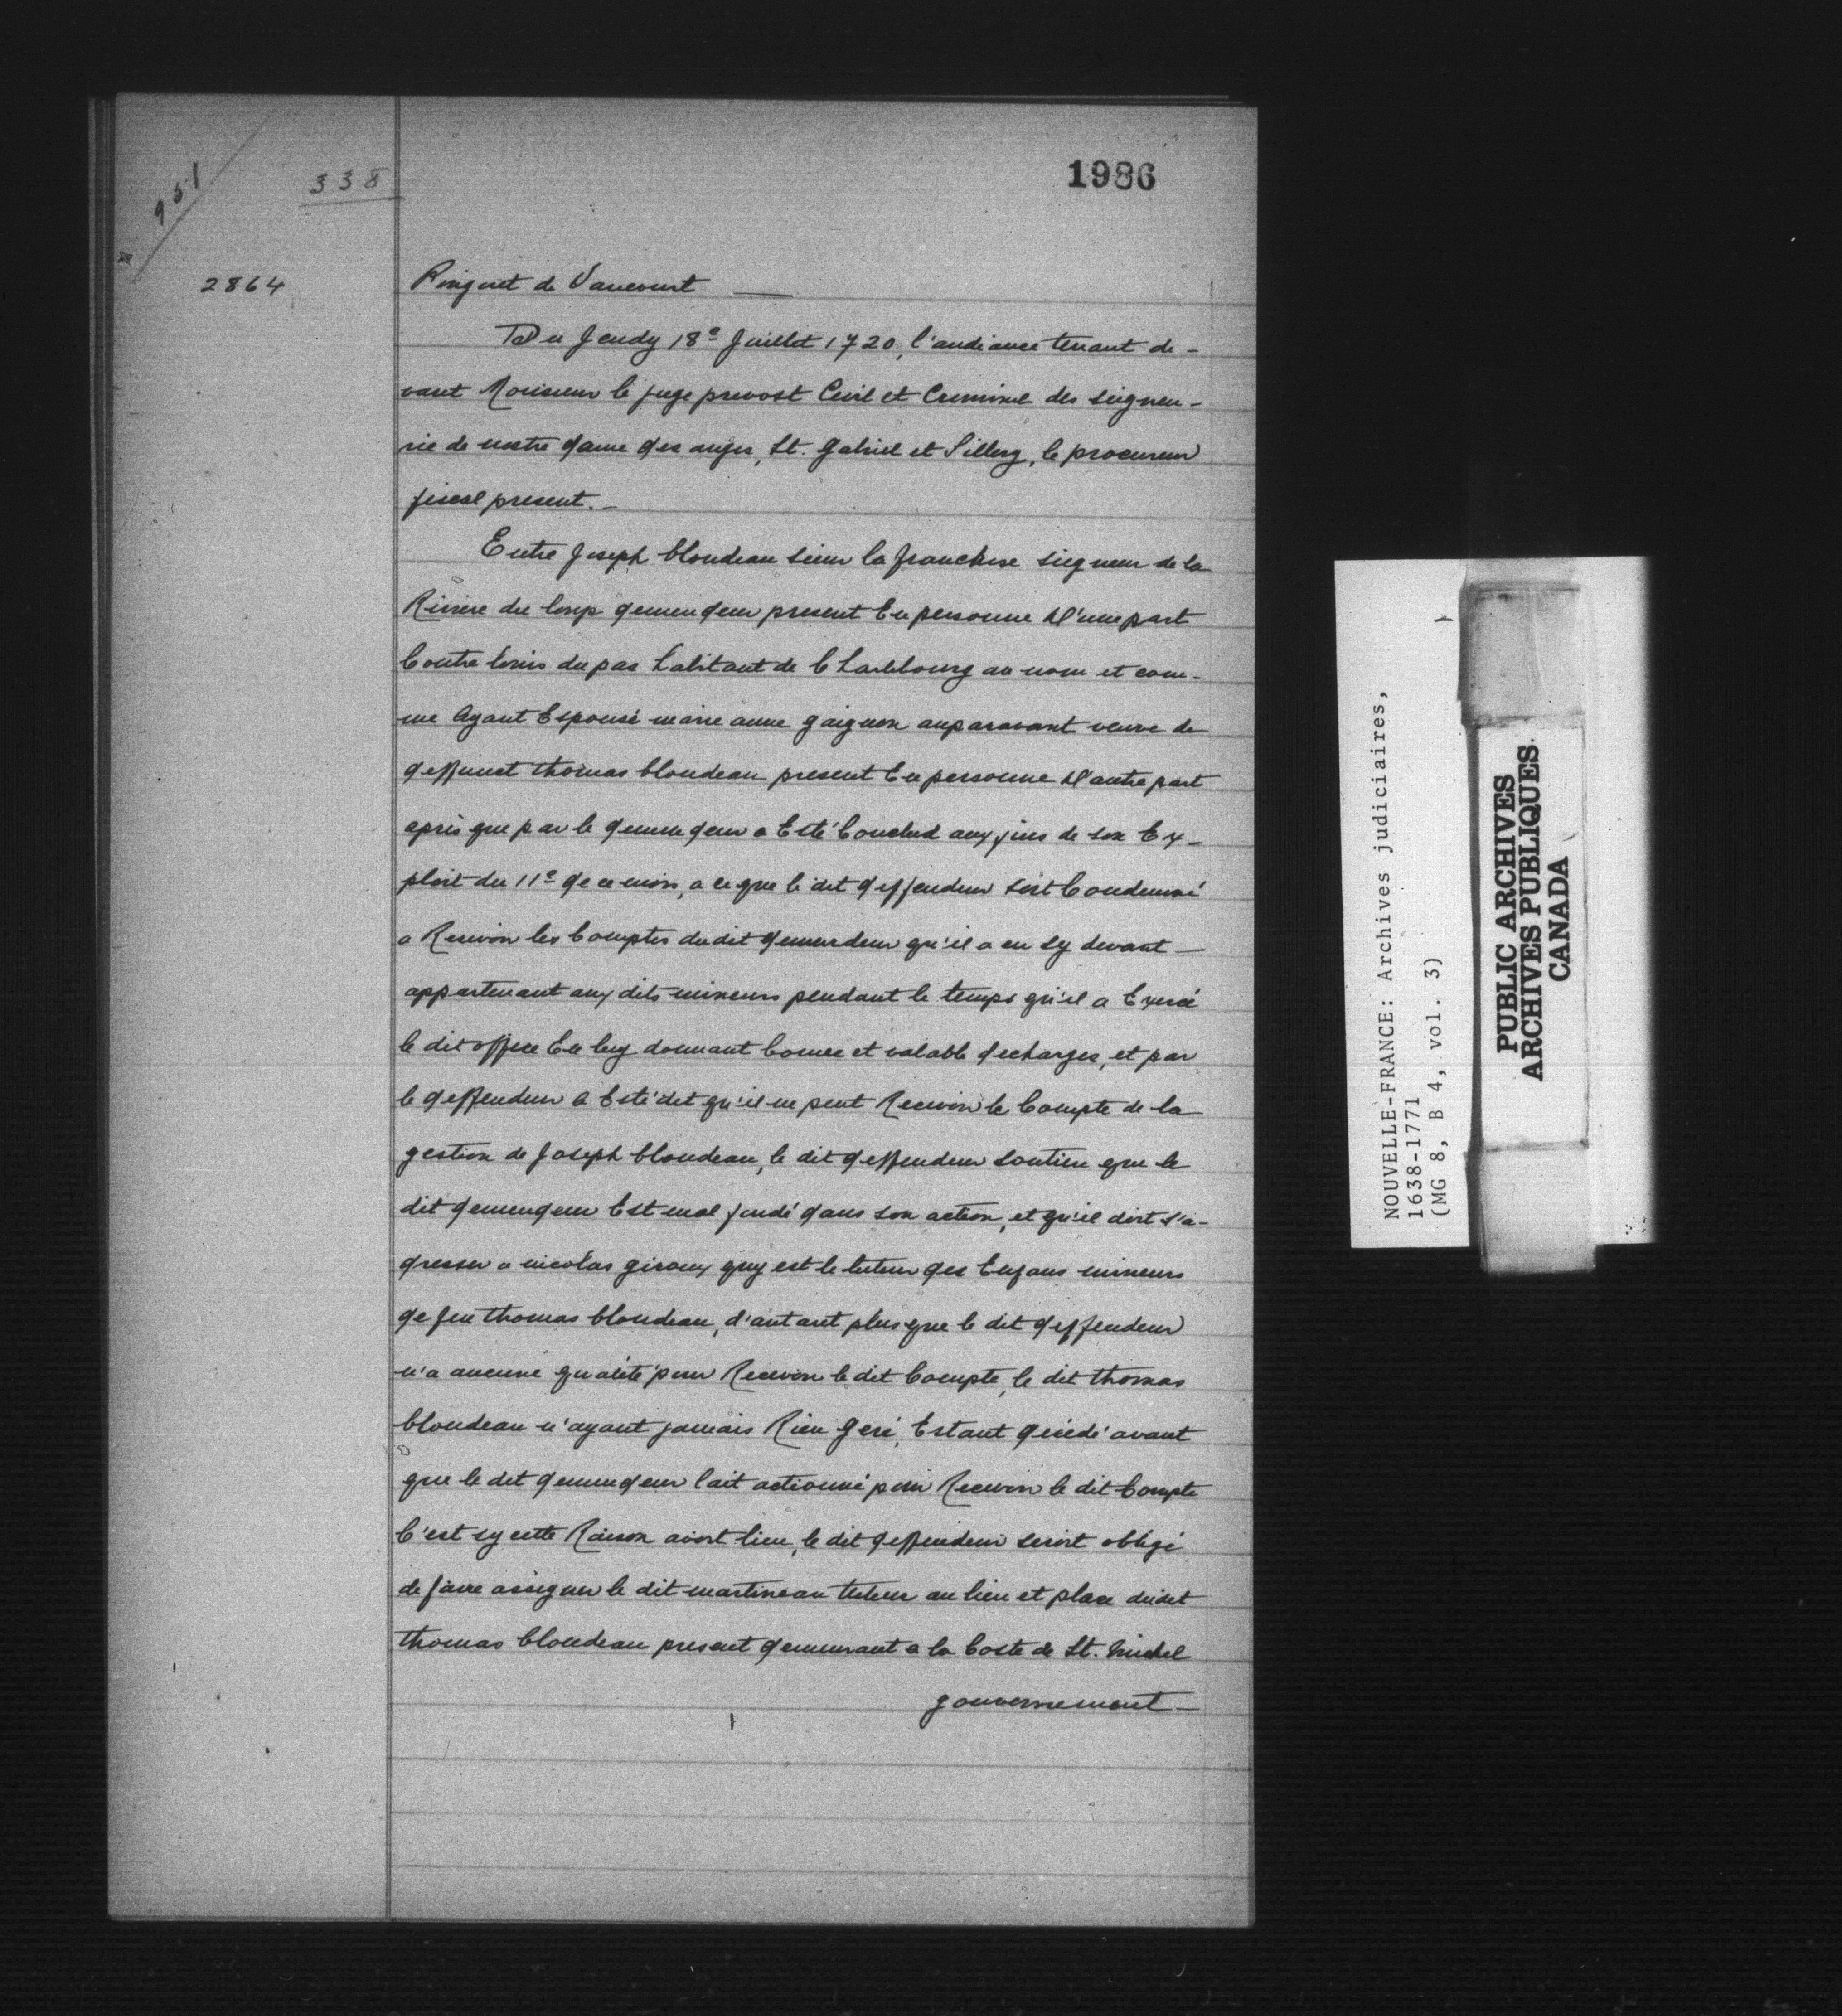 951
338
1986
2864
Ringuet de Vaucourt —
Du Jeudy 18e Juillet 1720, l'audiance tenant de-
vant Monsieur le juge prevost Civil et Criminel des seigneu-
rie de nostre dame des anges, St. Gabriel et Sillery, le procureur
fiscal present. —
Entre Joseph blondeau sieur la franchise siegneur de la
Riviere du loup demendeur present En personne d'une part
Contre louis du pas habitant de Charlebourg au nom et com-
me Ayant Espousé marie anne gaignon auparavant veuve de
deffunct thomas blondeau present En personne d'autre part
apris que par le demendeur a Esté Conclud aux fins de son Ex-
ploit du 11e de ce mois, a ce que le dit deffendeur soit Condemné
a Recevoir les Comptes dudit demendeur qu'il a eu cy devant —
appartenant aux dits mineurs pendant le temps qu'il a Exercé
le dit office En luy donnant bonne et valable decharges, et par
le deffendeur a Esté dit qu'il ne peut Recevoir le Compte de la
gestion de Joseph blondeau, le dit deffendeur soutien que le
dit demendeur Est mal fondé dans son action, et qu'il doit s'a-
dresser a nicolas giroux quy est le tuteur des Enfans mineurs
de feu thomas blondeau, d'autant plus que le dit deffendeur
n'a aucune qualité pour Recevoir le dit Compte, le dit thomas
blondeau n'ayant jamais Rien Geré, Estant décédé avant
que le dit demendeur lait actionné pour Recevoir le dit Compte
C'est sy cette Raison avoit lieu, le dit deffendeur seroit obligé
de faire assigner le dit martineau tuteur au lieu et place dudit
thomas blondeau present demeurant a la Coste de St. Michel
gouvernement —
NOUVELLE-FRANCE: Archives judiciaires,
1638-1771
(MG 8, B 4, vol. 3)
PUBLIC ARCHIVES
ARCHIVES PUBLIQUES
CANADA